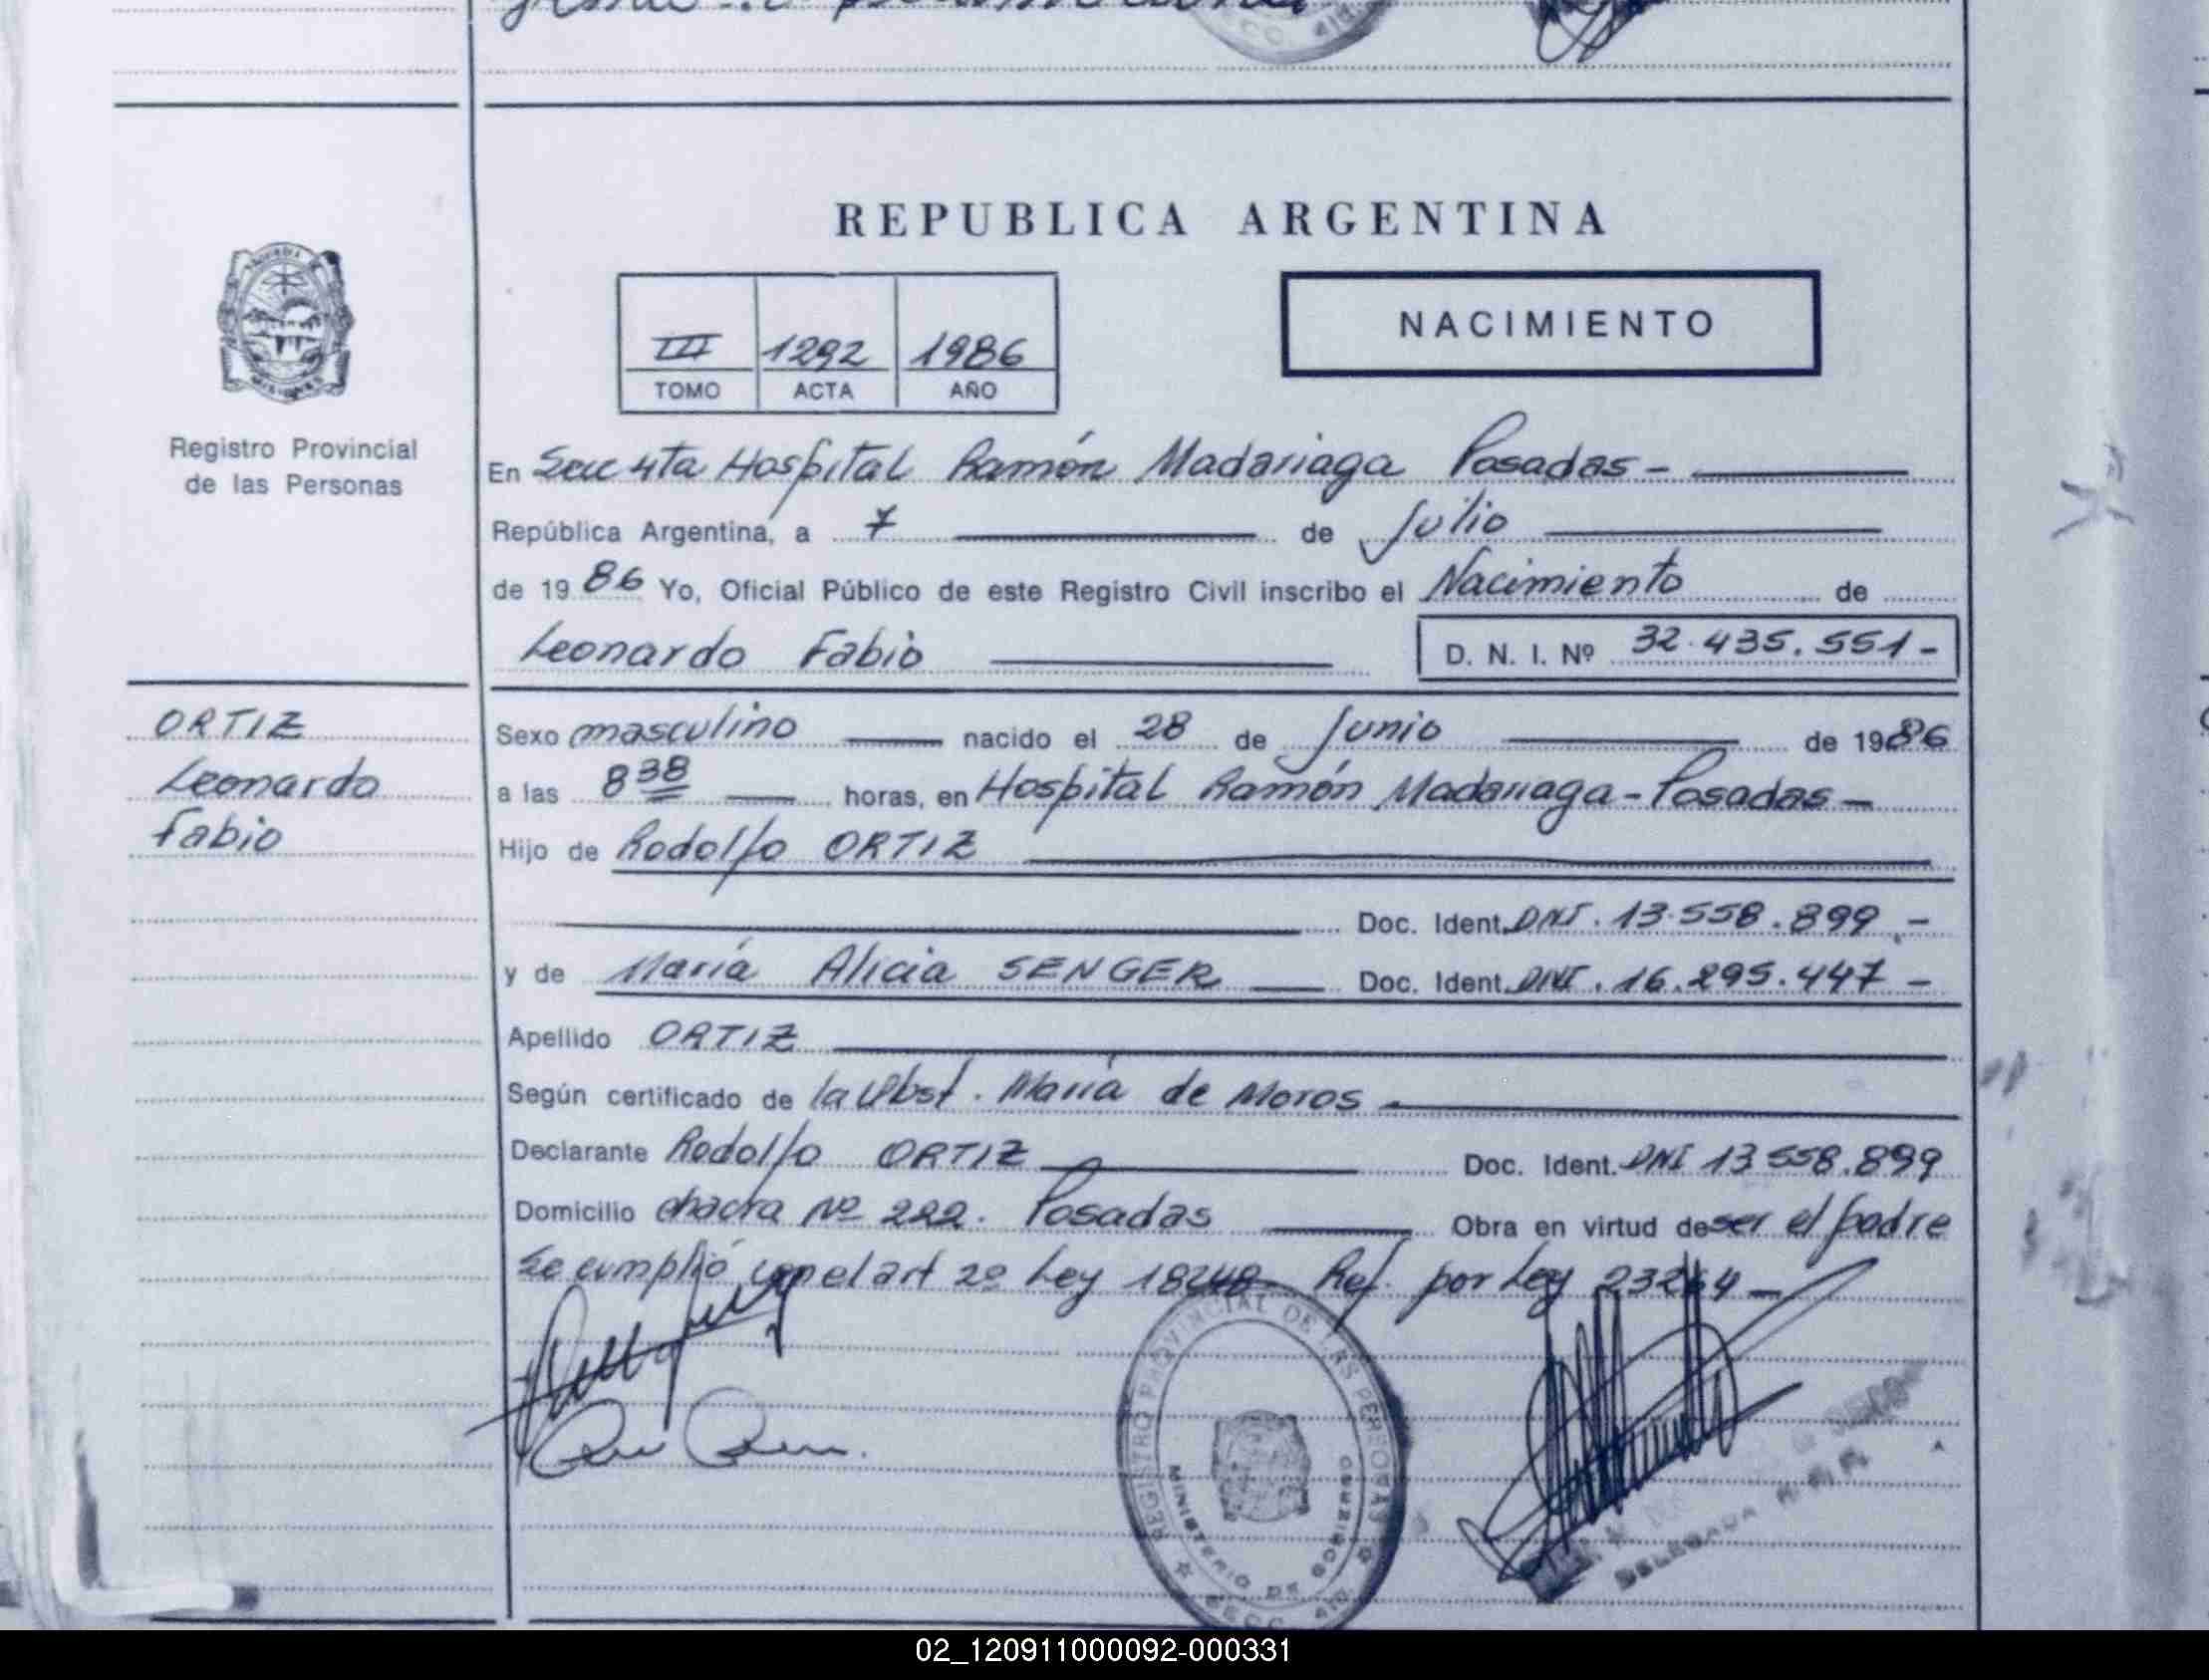 REPUBLICA ARGENTINA
NACIMIENTO
III 1292 1986
TOMO ACTA AÑO
Registro Provincial
de las Personas
En Secc 4ta Hospital Ramón Madariaga Posadas -
República Argentina, a 7 de Julio
de 1986 Yo, Oficial Público de este Registro Civil inscribo el Nacimiento de
Leonardo Fabio D. N. I. Nº 32.435.551-
ORTIZ
Leonardo
Fabio
Sexo masculino nacido el 28 de Junio de 1986
a las 8 38 horas, en Hospital Ramón Madariaga - Posadas -
Hijo de Rodolfo ORTIZ
Doc. Ident. DNI. 13.558.899.-
y de María Alicia SENGER Doc. Ident. DNI. 16.295.447 -
Apellido ORTIZ
Según certificado de la Obst. María de Moros -
Declarante Rodolfo ORTIZ Doc. Ident. DNI 13.558.899
Domicilio chacra Nº 222. Posadas Obra en virtud de ser el padre
Se cumplió con el art 2º Ley 18248 Ref. por Ley 23264 -
REGISTRO PROVINCIAL DE LAS PERSONAS
MINISTERIO DE GOBIERNO
SECC. 4ta
DELEGADA R.P.P.
02_120911000092-000331